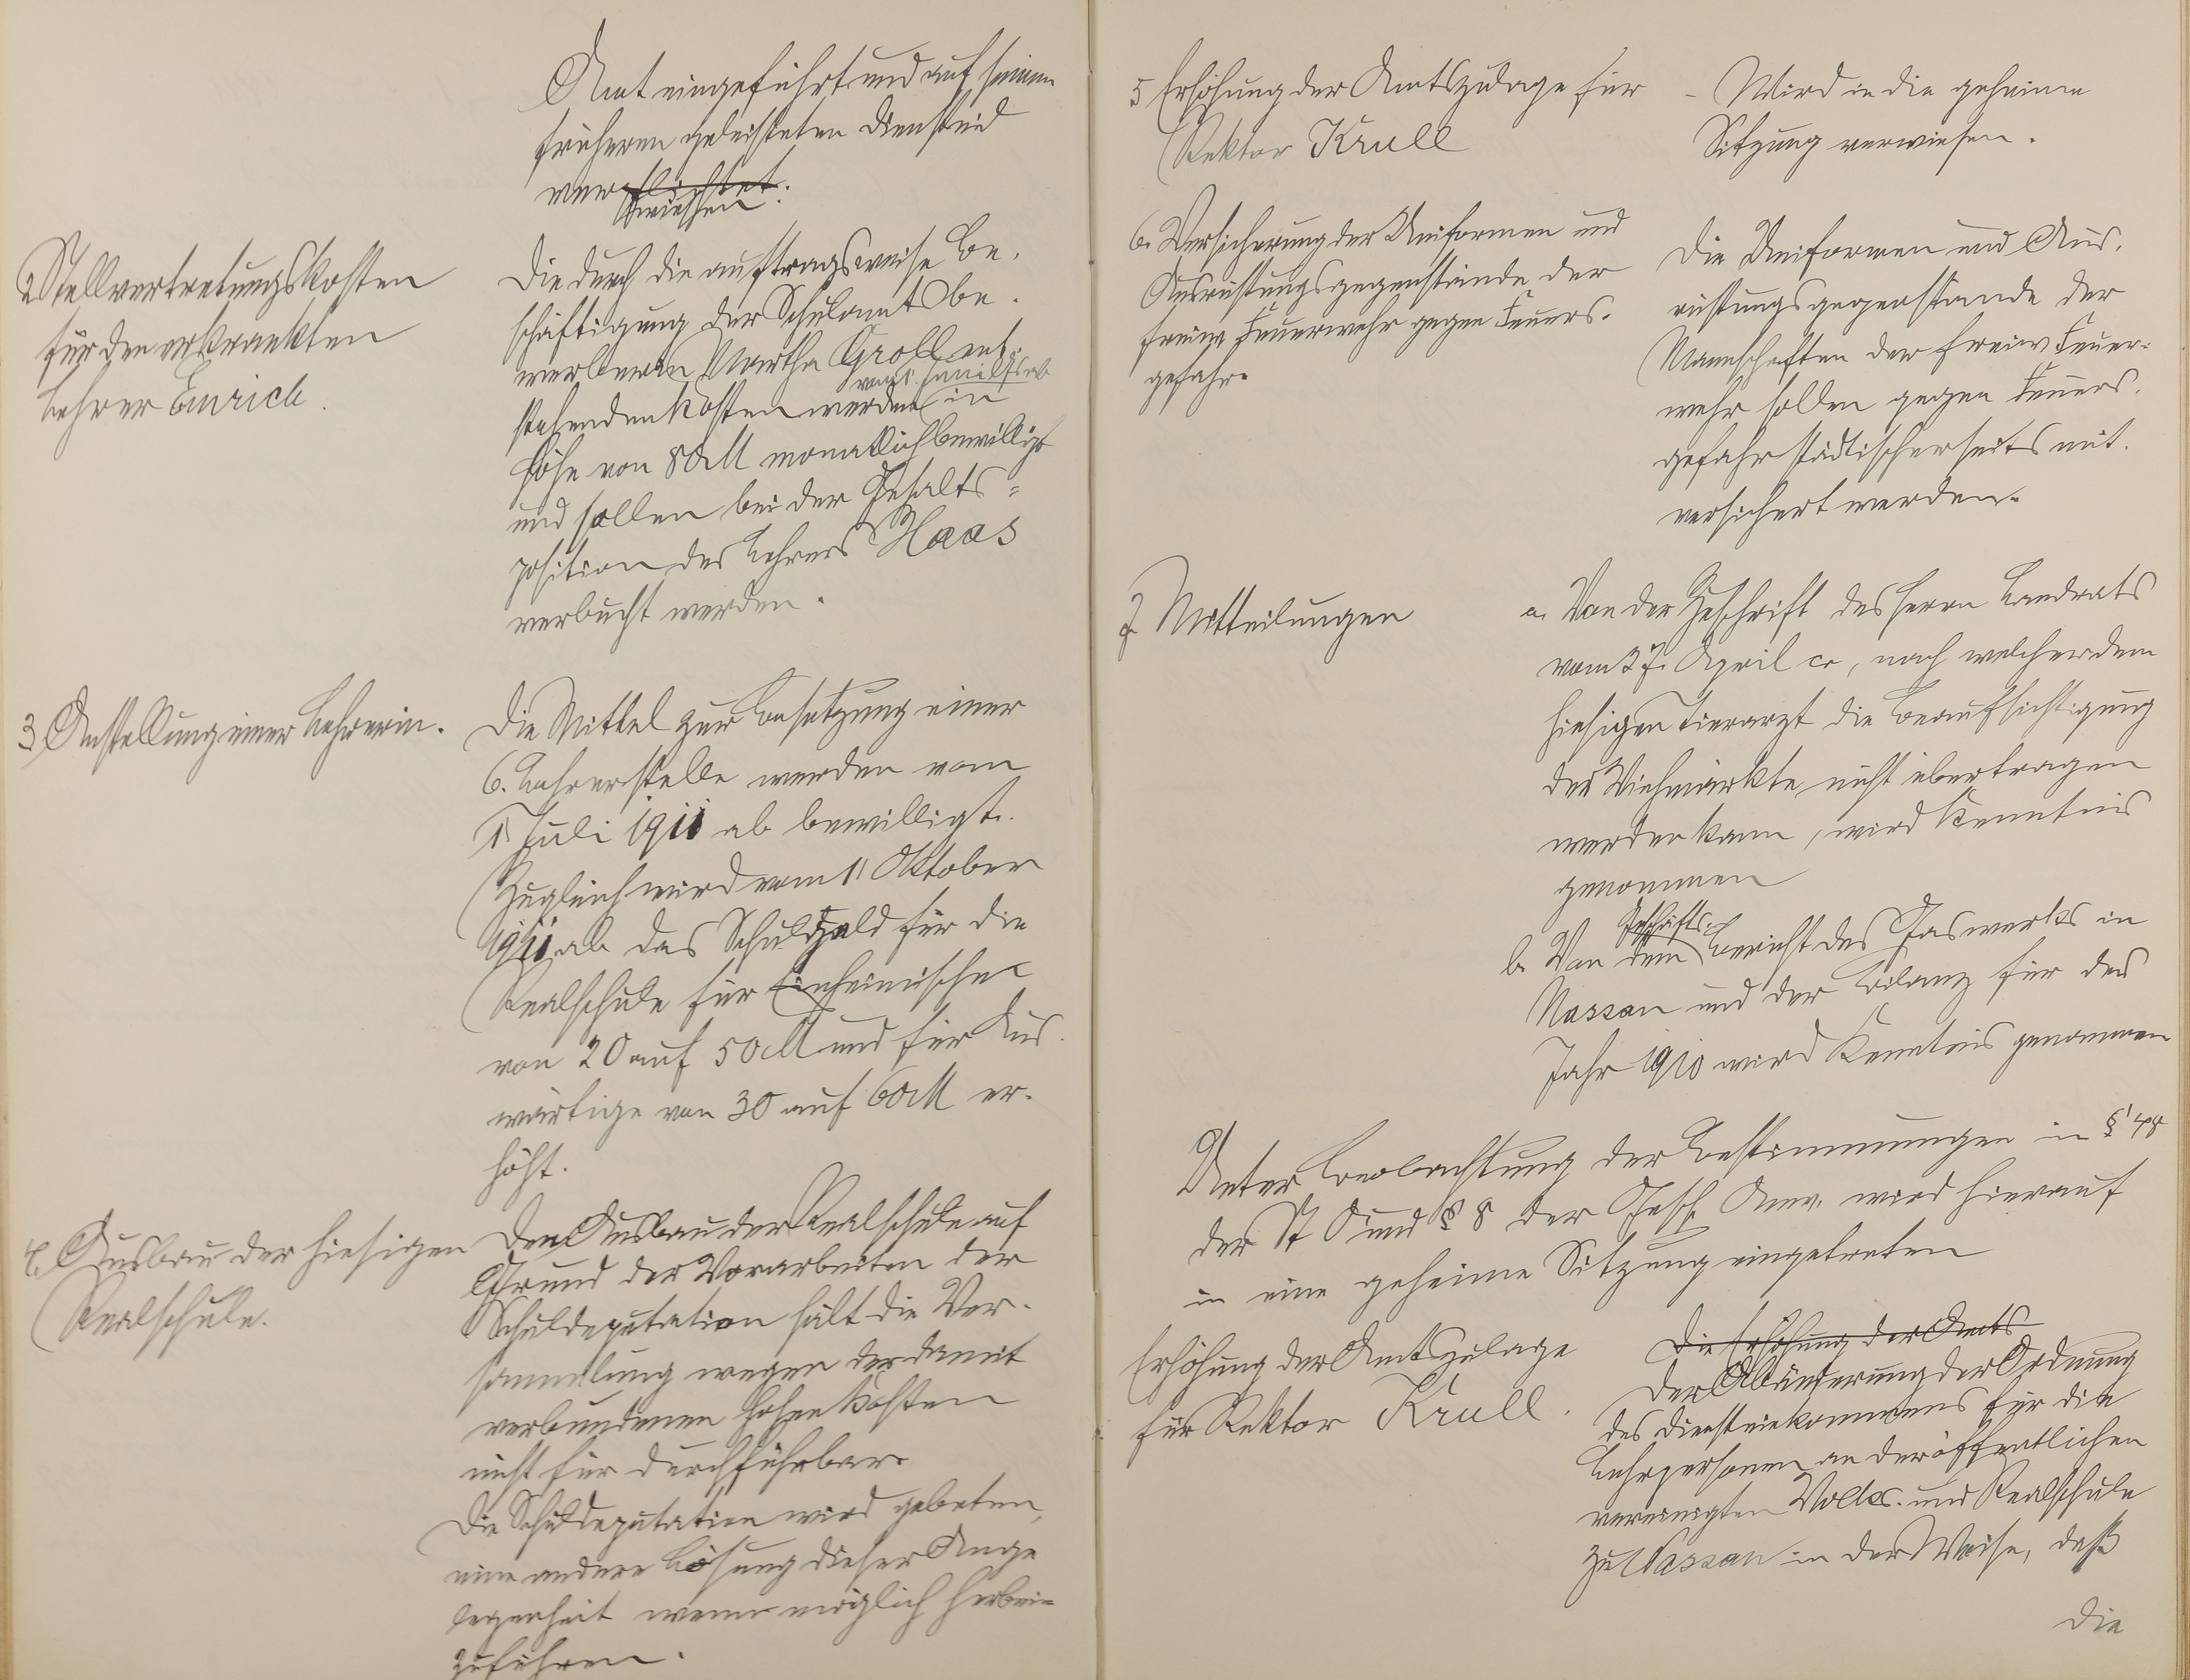 Amt eingeführt und auf seinen
früheren geleisteten Diensteid
verpflichtet.
verwiesen.
2 Stellvertretungskosten
für den erkrankten
Lehrer Emrich.
Die durch die auftragsweise Be-
schäftigung der Schulamtsbe-
werberin Martha Groll ent-
vom 1. ab
stehenden Kosten werden in
Höhe von 80 M monatlich bewilligt
und sollen bei der Gehalts=
position des Lehrers Haas
verbucht werden.
3 Anstellung einer Lehrerin.
Die Mittel zur Besetzung einer
6. Lehrerstelle werden vom
1. Juli 1911 ab bewilligt.
Zugleich wird vom 1. Oktober
1911 ab das Schulgeld für die
Realschule für Einheimische
von 20 auf 50 M und für Aus-
wärtige von 30 auf 60 M er-
höht.
4. Ausbau der hiesigen
Realschule.
Den Ausbau der Realschule auf
Grund der Vorarbeiten der
Schuldeputation hält die Ver-
sammlung wegen der damit
verbundenen hohen Kosten
nicht für durchführbar.
Die Schuldeputation wird gebeten,
eine andere Lösung dieser Ange
legenheit wenn möglich herbei-
zuführen.
5 Erhöhung der Amtszulage für
Rektor Krull
- Wird in die geheime
Sitzung verwiesen.
6. Versicherung der Uniformen und
Ausrüstungsgegenstände der
freiw. Feuerwehr gegen Feuers-
gefahr.
Die Uniformen und Aus-
rüstungsgegenstände der
Mannschaften der freiw Feuer-
wehr sollen gegen Feuers-
gefahr städtischerseits mit-
versichert werden.
7 Mitteilungen
a. Von der Zuschrift des Herrn Landrats
vom 27. April cr, nach welcher dem
hiesigen Tierarzt die Beaufsichtigung
der Viehmärkte nicht übertragen
werden kann, wird Kenntnis
genommen
b. Von dem Geschäfts-bericht des Gaswerks in
Nassau und der Bilanz für das
Jahr 1910 wird Kenntnis genommen
Unter Beobachtung der Bestimmungen in § 48
der St O und § 8 der Gesch. Anw. wird hierauf
in eine geheime Sitzung eingetreten
Erhöhung der Amtszulage
für Rektor Krull.
Die Erhöhung der Amts
Der Abänderung der Ordnung
des Diensteinkommens für die
Lehrpersonen an der öffentlichen
vereinigten Volks- und Realschule
zu Nassau in der Weise, daß
die